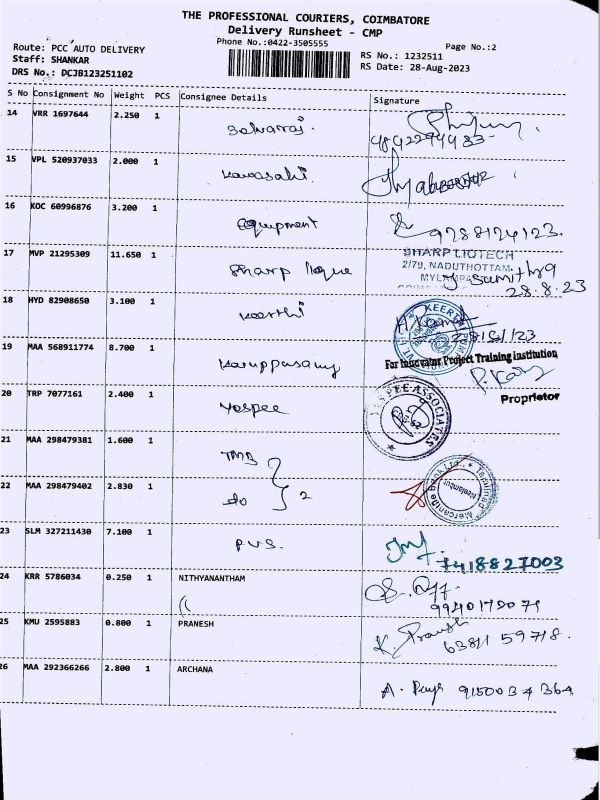 THE PROFESSIONAL COURIERS, COIMBATORE
Delivery Runsheet - CMP
Phone No.:0422-3505555
Page No.:2
Route: PCC AUTO DELIVERY
Staff: SHANKAR
DRS No.: DCJB123251102
RS No.: 1232511
RS Date: 28-Aug-2023
S No Consignment No Weight PCS Consignee Details Signature
14 VRR 1697644 2.250 1
15 VPL 520937033 2.000 1 Kawasaki
16 KOC 60996876 3.200 1 Equipment 9788124123.
17 MVP 21295309 11.650 1 Sharp
SHARP LIQTECH
2/79, NADUTHOTTAM
28.8.23
18 HYD 82908650 3.100 1 Keerthi
19 MAA 568911774 8.700 1 Karuppasamy
For Innovator Project Training Institution
Proprietor
20 TRP 7077161 2.400 1 Yospee
21 MAA 298479381 1.600 1 TMB
22 MAA 298479402 2.830 1 do 2
Tamilnad Mercantile Bank Ltd.
23 SLM 327211430 7.100 1 P.V.S. 7418827003
24 KRR 5786034 0.250 1 NITHYANANTHAM
25 KMU 2595883 0.800 1 PRANESH K. Pranesh 63811 59718.
26 MAA 292366266 2.800 1 ARCHANA